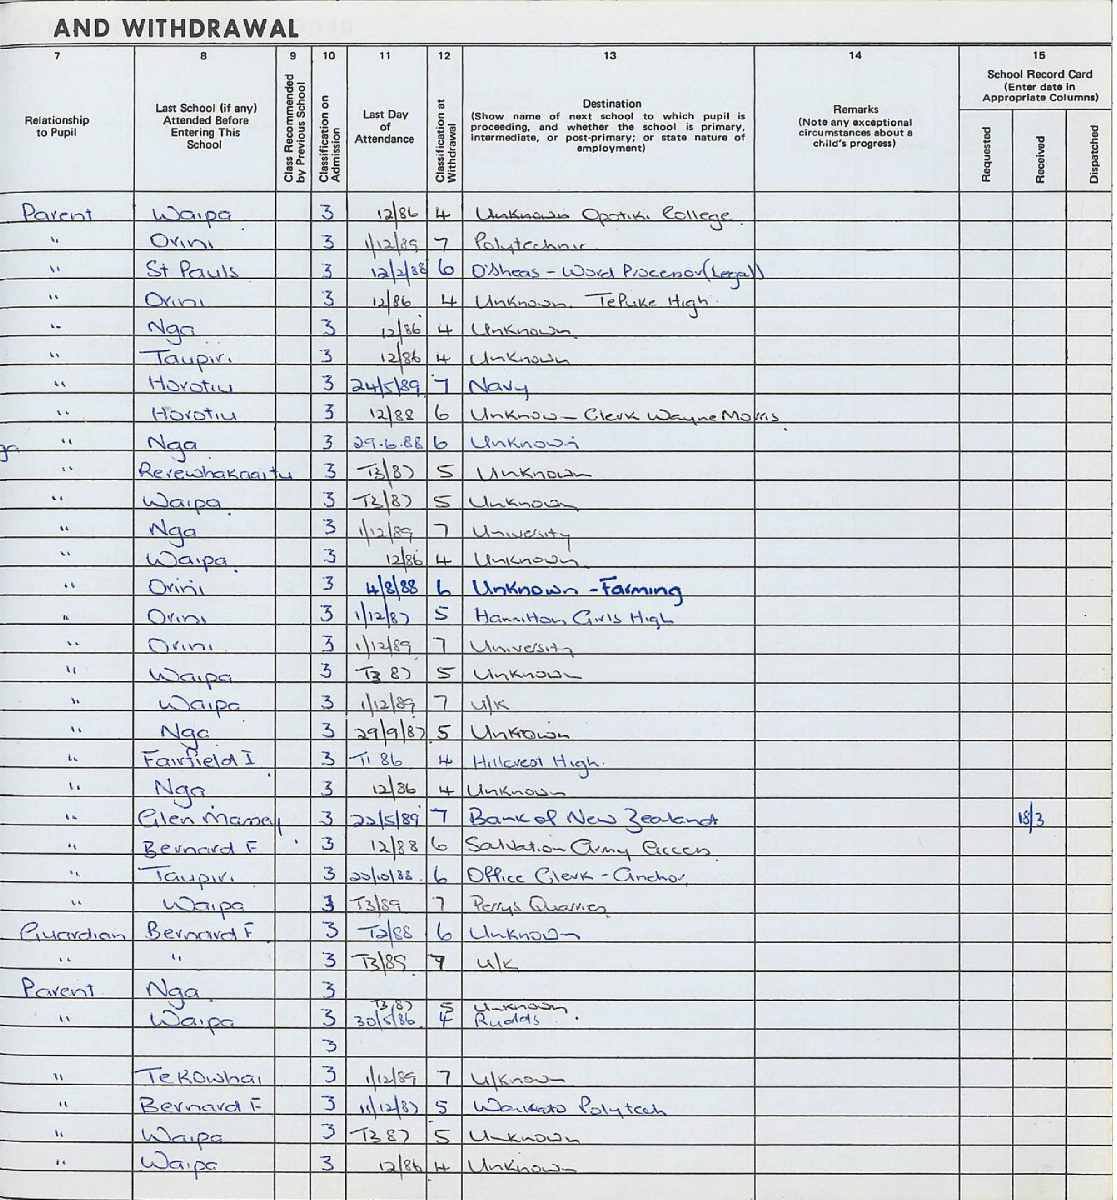 AND WITHDRAWAL
7 8 9 10 11 12 13 14 15
Relationship to Pupil
Last School (if any) Attended Before Entering This School
Class Recommended by Previous School
Classification on Admission
Last Day of Attendance
Classification at Withdrawal
Destination
(Show name of next school to which pupil is proceeding, and whether the school is primary, intermediate, or post-primary; or state nature of employment)
Remarks
(Note any exceptional circumstances about a child's progress)
School Record Card
(Enter date in Appropriate Columns)
Requested
Received
Dispatched
Parent Waipa 3 12/86 4 Unknown Opotiki College
" Orini 3 1/12/89 7 Polytechnic
" St Pauls 3 12/2/88 6 O'Sheas - Word Processor (Legal)
" Orini 3 12/86 4 Unknown. TePuke High.
" Nga 3 12/86 4 Unknown
" Taupiri 3 12/86 4 Unknown
" Horotiu 3 24/5/89 7 Navy
" Horotiu 3 12/88 6 Unknow - Clerk Wayne Morris.
" Nga 3 29.6.88 6 Unknown
" Rerewhakaaitu 3 T3/87 5 Unknown
" Waipa 3 T3/87 5 Unknown
" Nga 3 1/12/89 7 University
" Waipa 3 12/86 4 Unknown
" Orini 3 4/8/88 6 Unknown - Farming
" Orini 3 1/12/87 5 Hamilton Girls High
" Orini 3 1/12/89 7 University
" Waipa 3 T3 87 5 Unknown
" Waipa 3 1/12/89 7 U/K
" Nga 3 29/9/87 5 Unknown
" Fairfield I 3 T1 86 4 Hillcrest High.
" Nga 3 12/86 4 Unknown
" Glen Massey 3 22/5/89 7 Bank of New Zealand 18/3
" Bernard F 3 12/88 6 Salvation Army Access
" Taupiri 3 20/10/88 6 Office Clerk - Anchor
" Waipa 3 T3/89 7 Perrys Quarries
Guardian Bernard F 3 T2/88 6 Unknown
" " 3 T3/89 7 U/K
Parent Nga 3
T3/87 5 Unknown
" Waipa 3 30/5/86 4 Rudds.
3
" TeKowhai 3 1/12/89 7 U/Known
" Bernard F 3 11/12/87 5 Waikato Polytech
" Waipa 3 T3 87 5 Unknown
" Waipa 3 12/86 4 Unknown